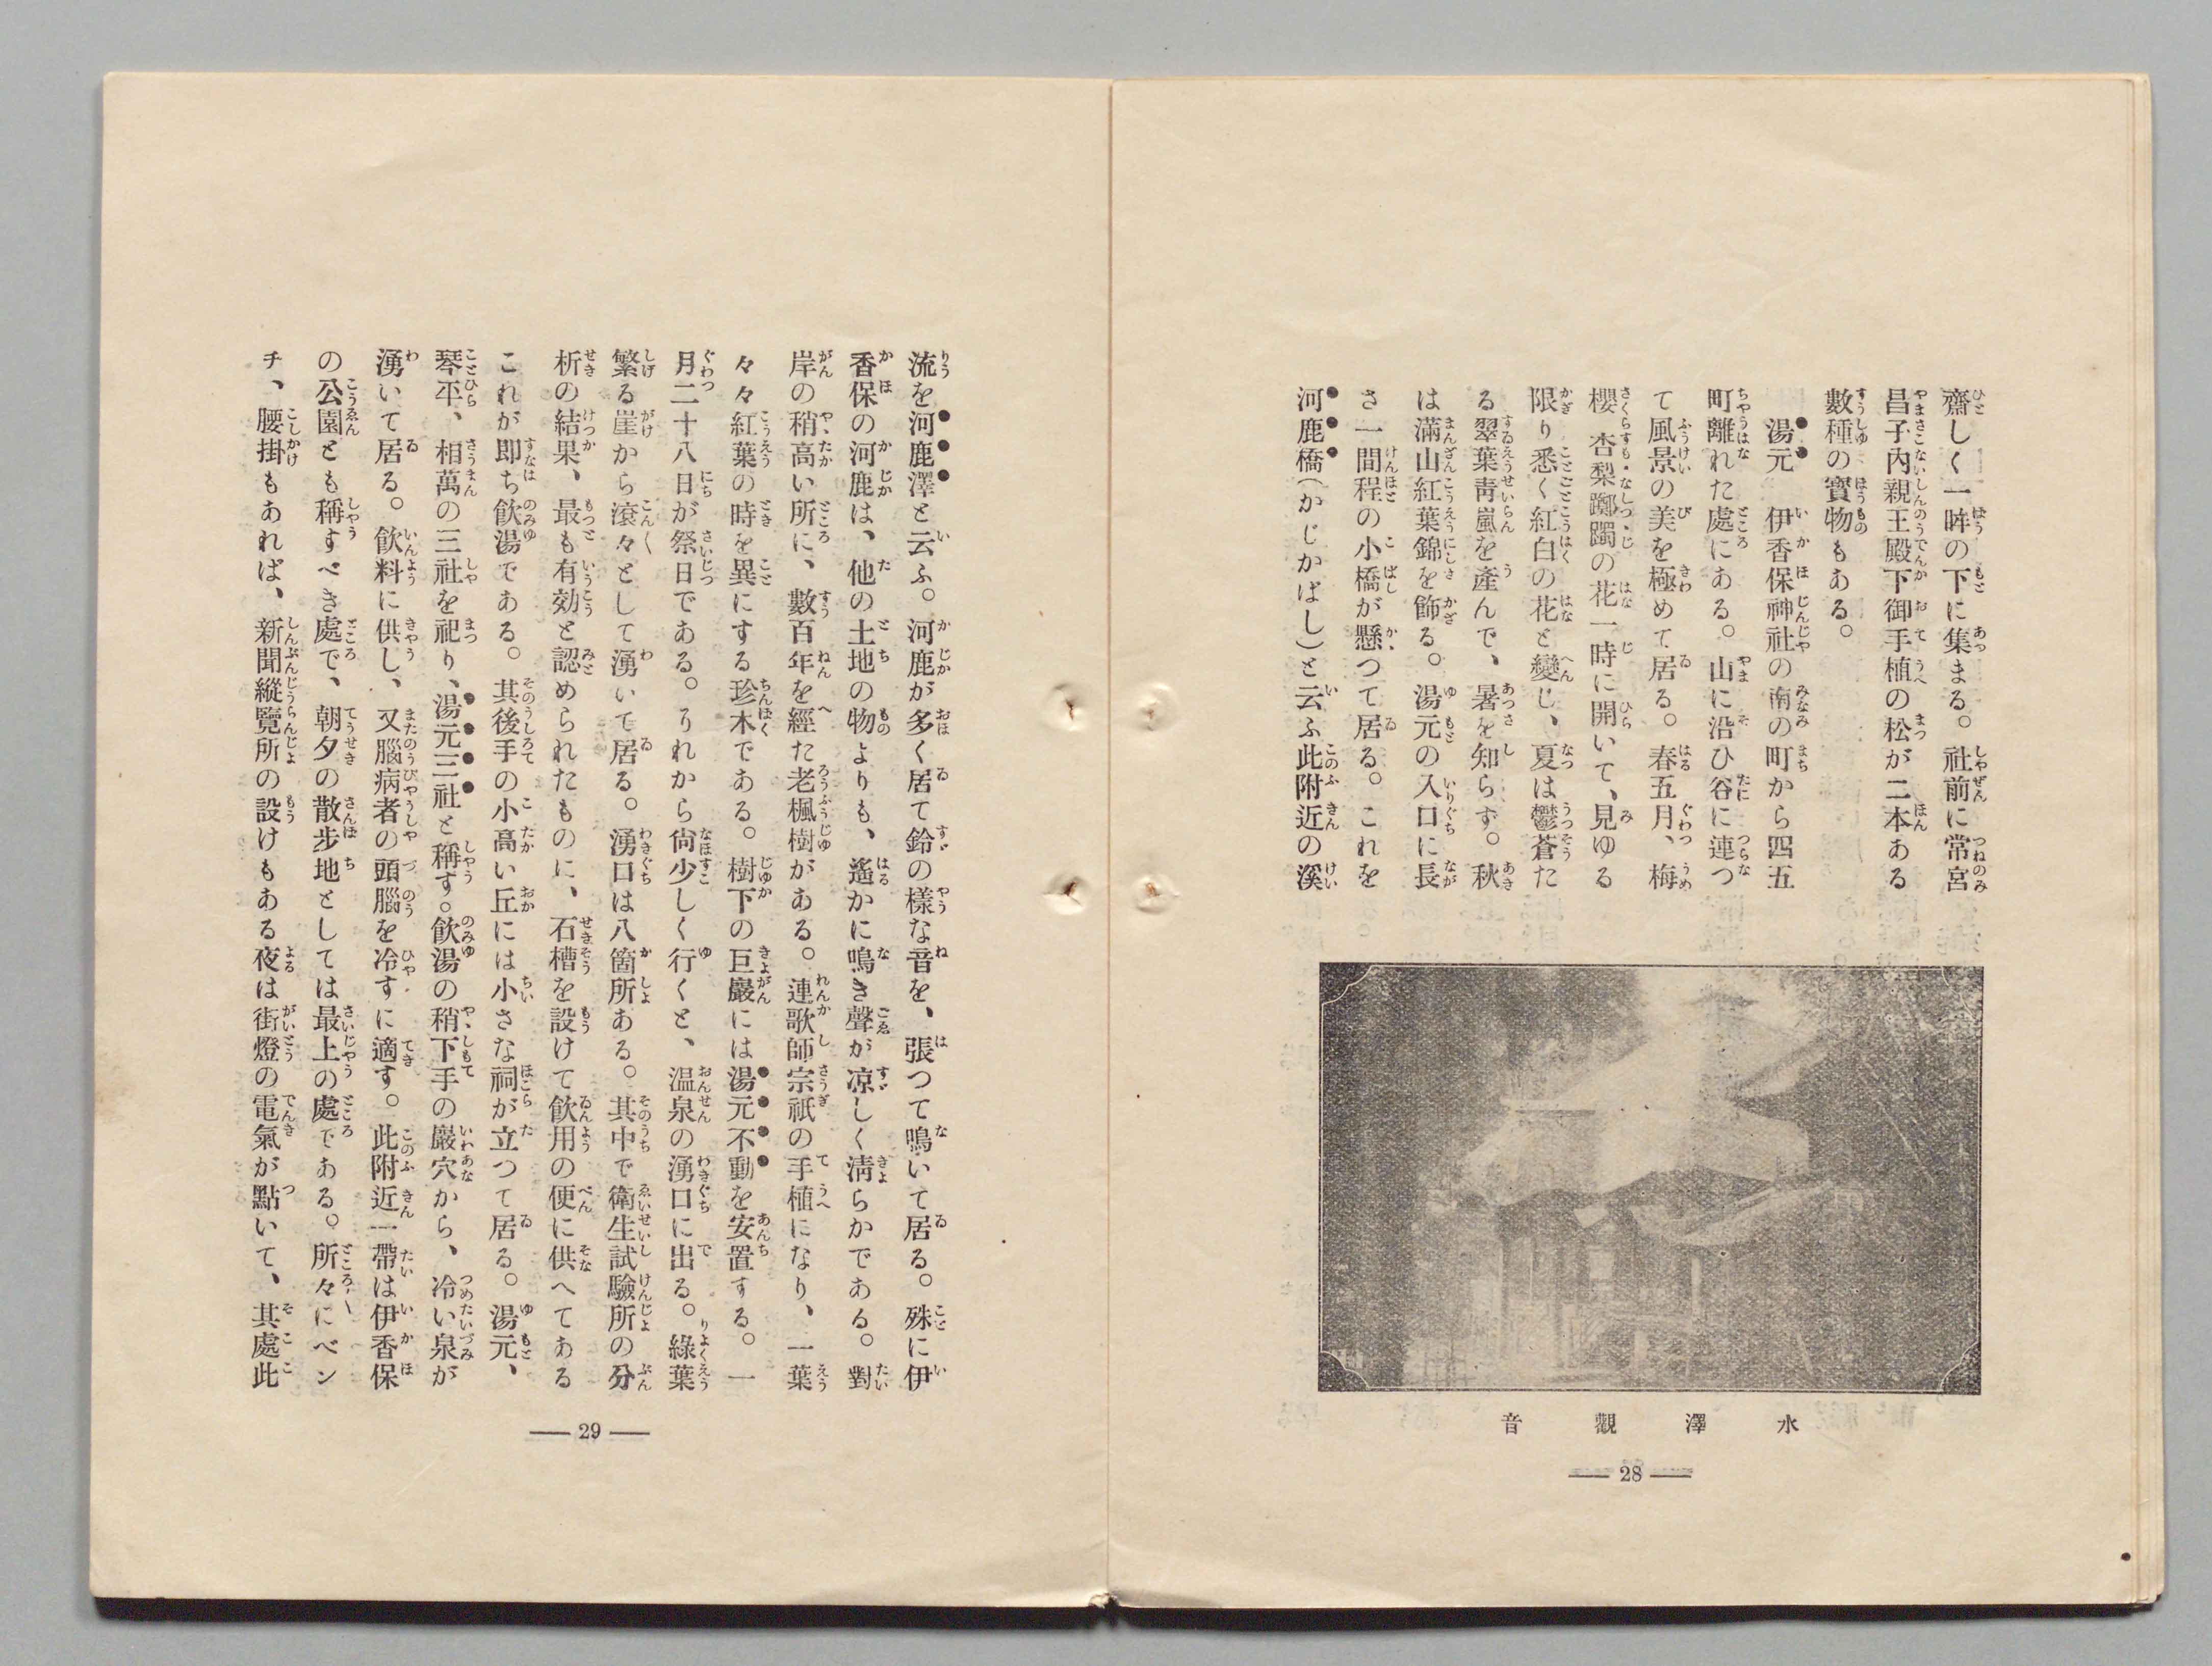 齋しく一眸の下に集まる。社前に常宮
昌子內親王殿下御手植の松が二本ある
數種の寶物もある。
湯元　伊香保神社の南の町から四五
町離れた處にある。山に沿ひ谷に連つ
て風景の美を極めて居る。春五月、梅
櫻杏梨躑躅の花一時に開いて、見ゆる
限り悉く紅白の花と變じ、夏は鬱蒼た
る翠葉靑嵐を產んで、暑を知らず。秋
は滿山紅葉錦を飾る。湯元の入口に長
さ一間程の小橋が懸つて居る。これを
河鹿橋(かじかばし)と云ふ此附近の溪
水澤觀音
28
流を河鹿澤と云ふ。河鹿が多く居て鈴の樣な音を、張つて鳴いて居る。殊に伊
香保の河鹿は、他の土地の物よりも、遙かに鳴き聲が凉しく淸らかである。對
岸の稍高い所に、數百年を經た老楓樹がある。連歌師宗祇の手植になり、一葉
々々紅葉の時を異にする珍木である。樹下の巨巖には湯元不動を安置する。一
月二十八日が祭日である。りれから尙少しく行くと、温泉の湧口に出る。綠葉
繁る崖から滾々として湧いて居る。湧口は八箇所ある。其中で衛生試驗所の分
析の結果、最も有効と認められたものに、石槽を設けて飮用の便に供へてある
これが即ち飮湯である。其後手の小高い丘には小さな祠が立つて居る。湯元、
琴平、相萬の三社を祀り、湯元三社と稱す。飮湯の稍下手の巖穴から、冷い泉が
湧いて居る。飮料に供し、又腦病者の頭腦を冷すに適す。此附近一帶は伊香保
の公園とも稱すべき處で、朝夕の散步地としては最上の處である。所々にベン
チ、腰掛もあれば、新聞縱覽所の設けもある夜は街燈の電氣が點いて、其處此
29